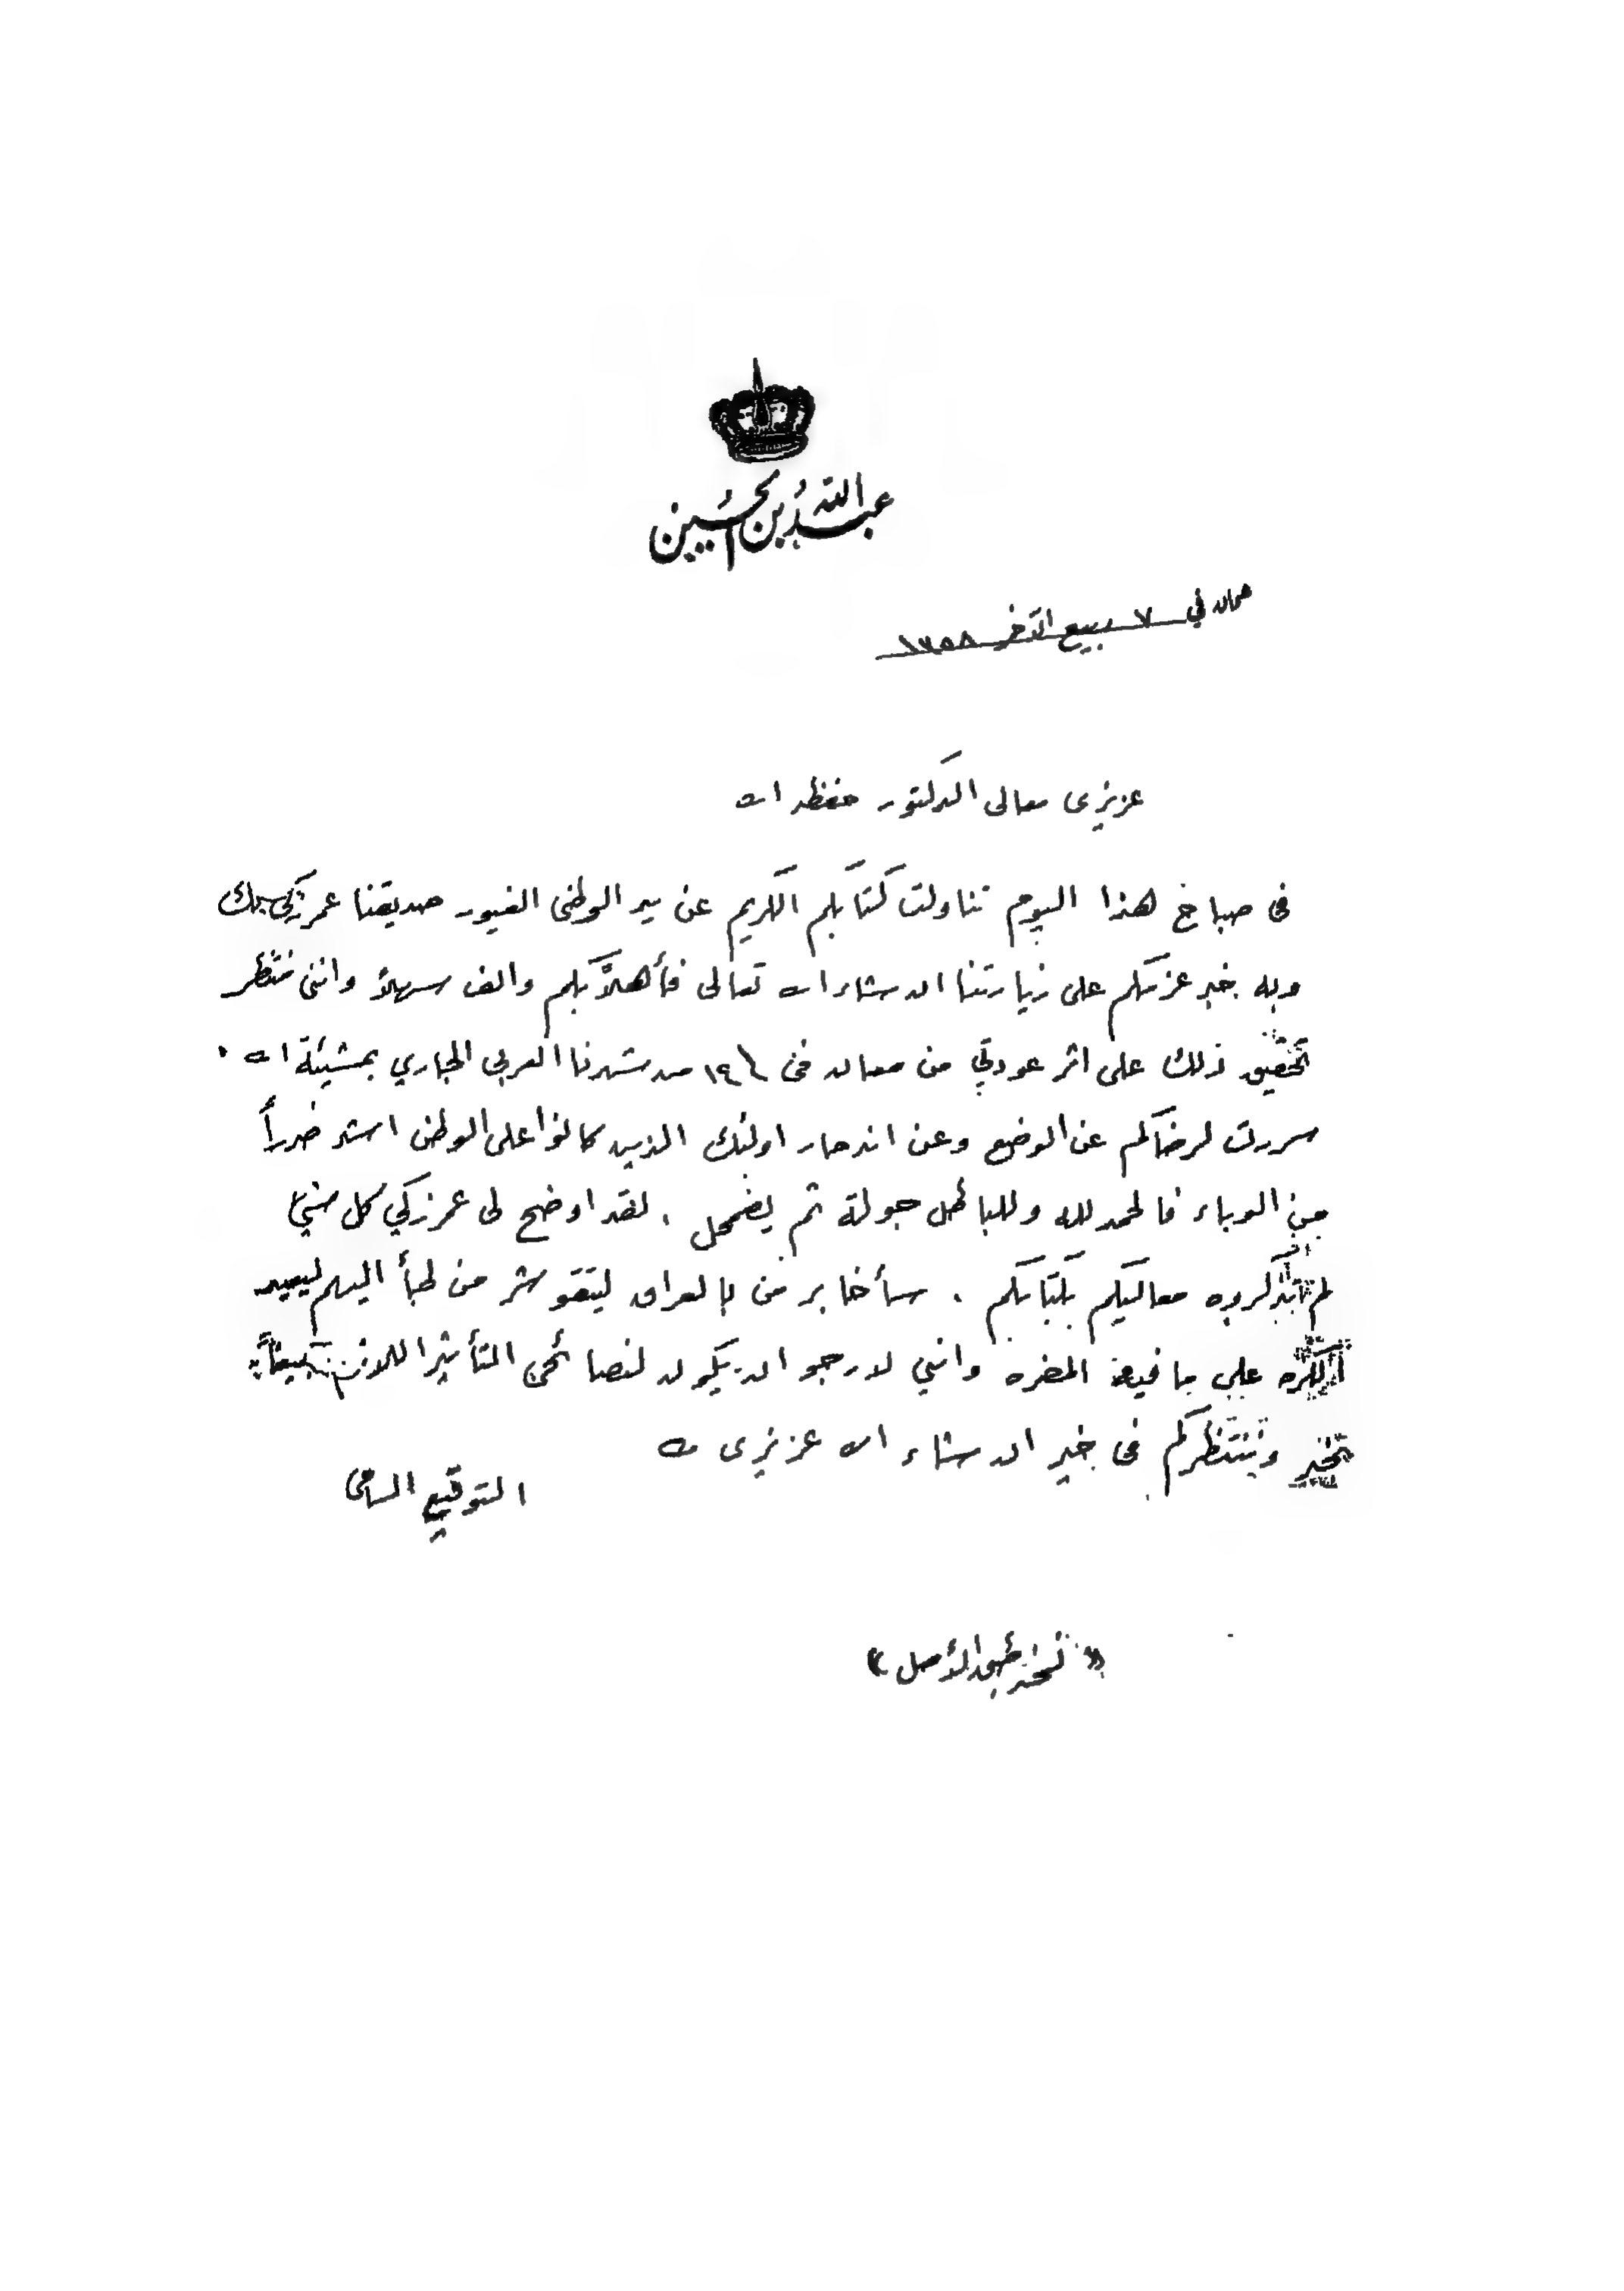 عبد الله بن الحسين
عمان في ٧ ربيع الآخر ١٣٥٨
عزيزى معالى الدكتور حفظه الله
فى صباح هذا اليوم تناولت كتابكم الكريم عن يد الوطنى الغيور صديقنا عمر زكي بك
وبه خبر عزمكم على زيارتنا ان شاء الله تعالى فأهلاً بكم والف سهلاً واننى منتظر
تحقيق ذلك على اثر عودتي من معان فى ١٩ من شهرنا العربي الجاري بمشيئة الله .
سررت لرضاكم عن الوضع وعن اندحار اولئك الذين كانوا على الوطن اشد ضرراً
من الوباء فالحمد لله وللباطل جولة ثم يضمحل . لقد اوضح لى عمر زكي كل شيء
لم تذكروه معاليكم بكتابكم . سأخابر من بالعراق من لجأ اليهم
الكره على ما فيه المضره وانني لارجو ان يكون لنصائحى التأثير اللازم
بخير وننتظركم فى خير ان شاء الله عزيزى
التوقيع السامى
« نسخة طبق الأصل »